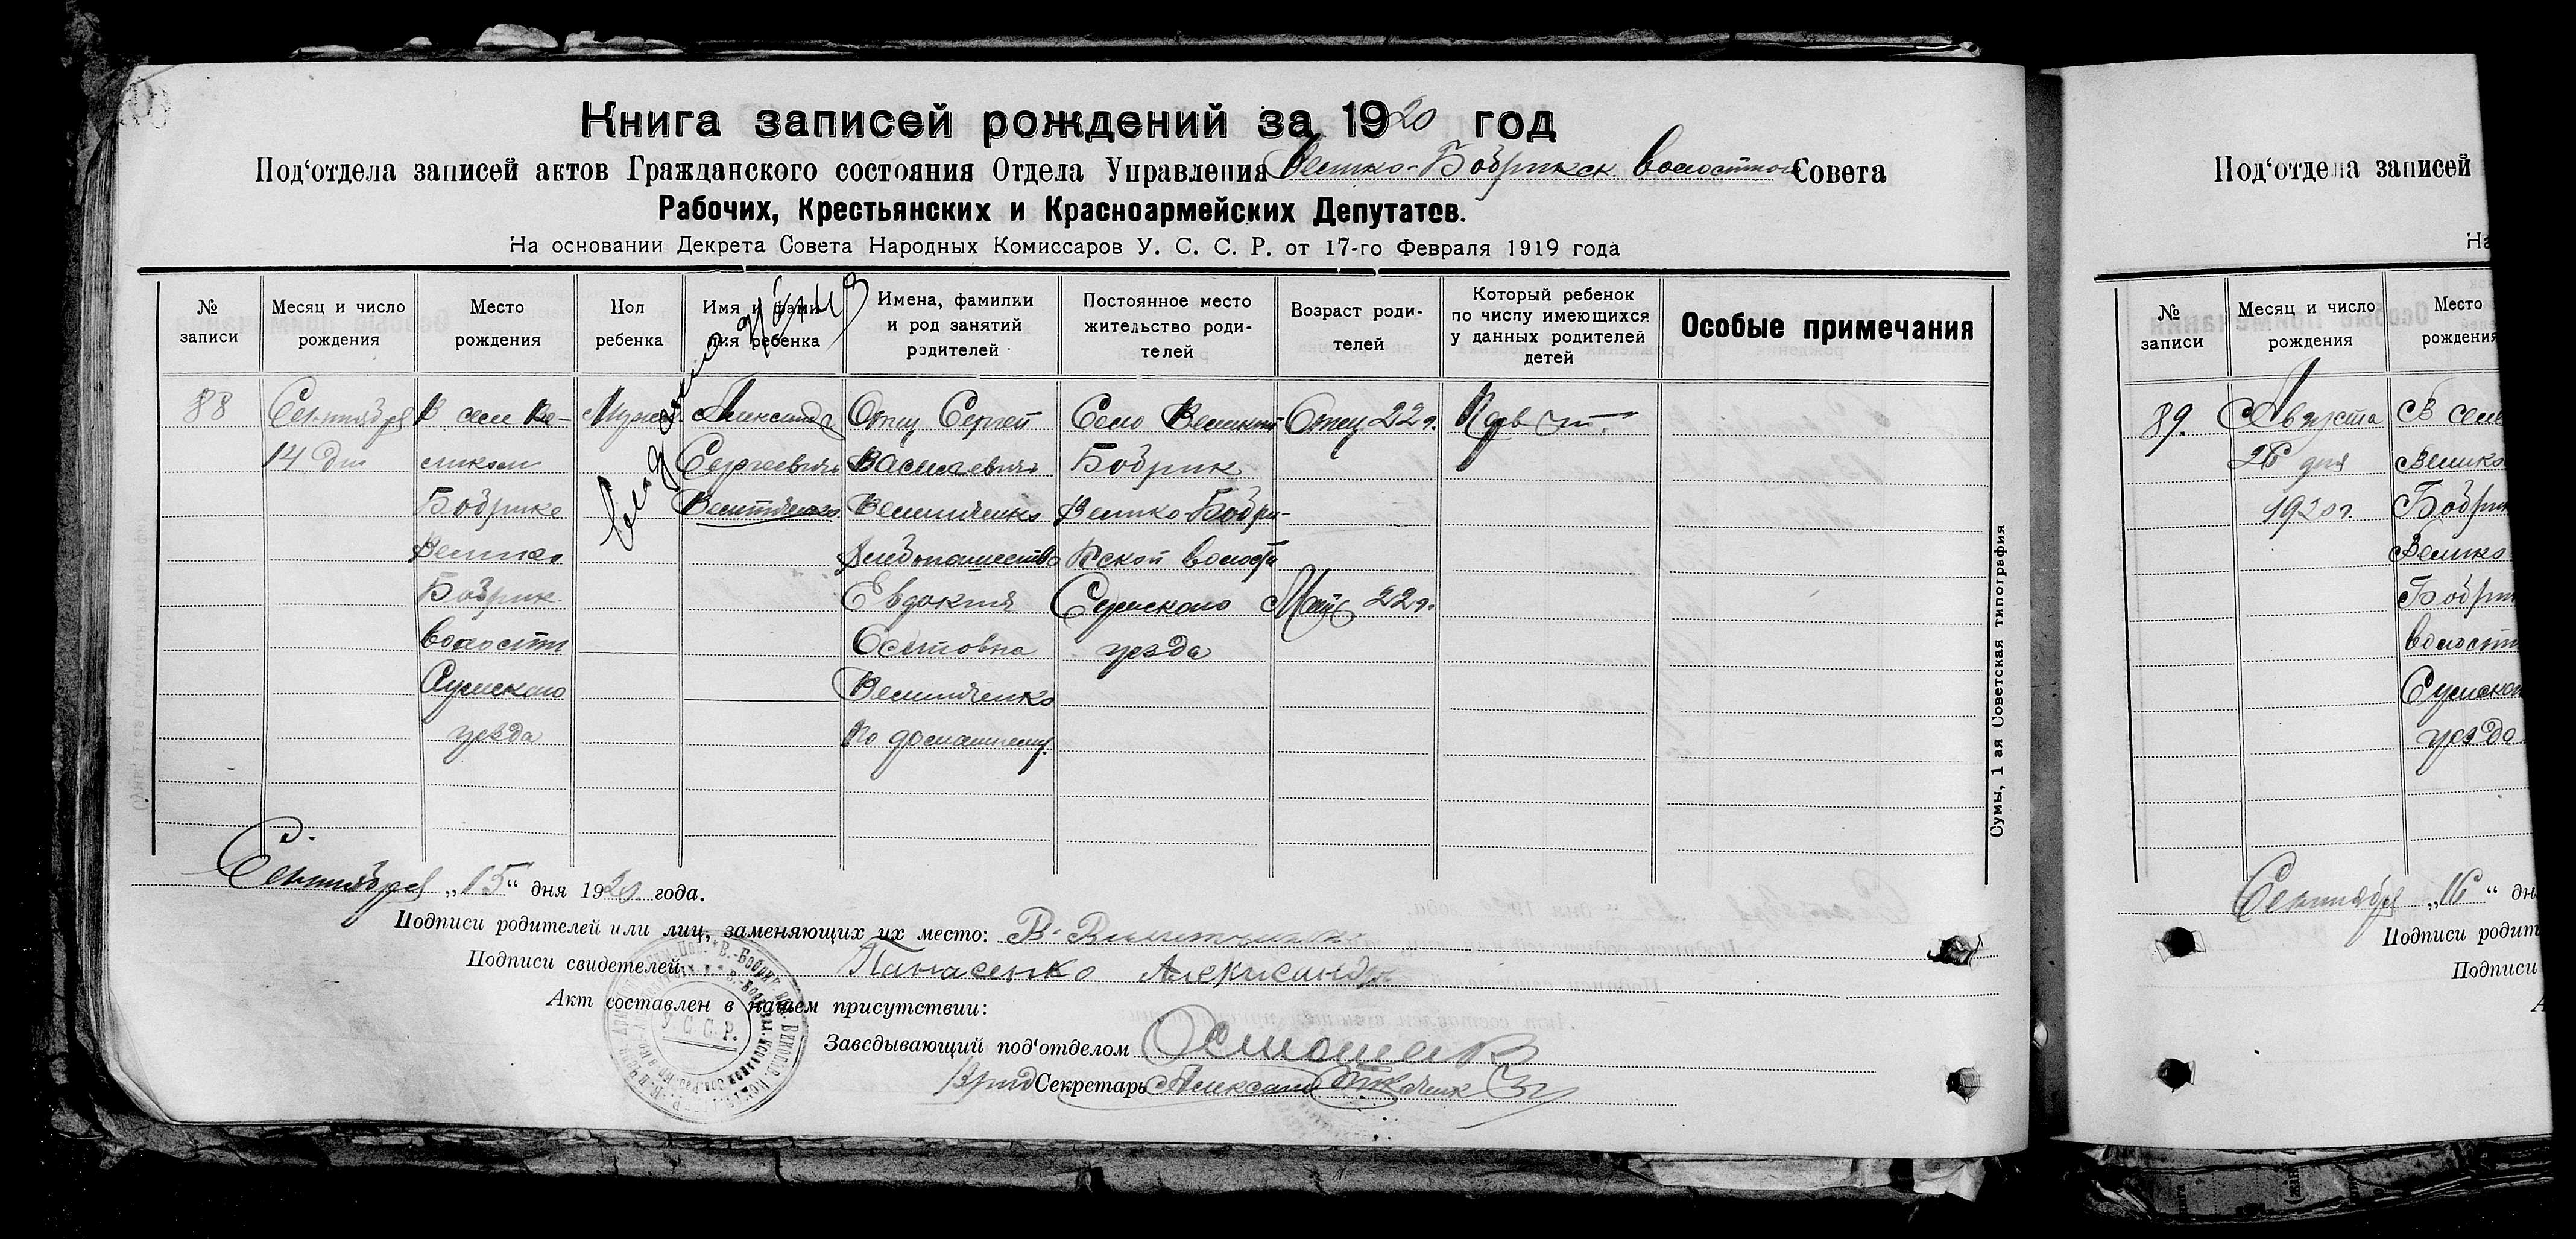 Книга записей рождений за 1920 год
Под‘отдела записей актов Гражданского состояния Отдела Управления Велико-Бобрикск. Волостного Совета
Рабочих, Крестьянских и Красноармейских Депутатов.
На основании Декрета Совета Народных Комиссаров У. С. С. Р. от 17-го Февраля 1919 года
№ записи
Месяц и число рождения
Место рождения
Пол ребенка
Имя и фамилия ребенка
Имена, фамилии и род занятий родителей
Постоянное место жительство родителей
Возраст родителей
Который ребенок по числу имеющихся у данных родителей детей
Особые примечания
88
Сентября
14 дня
В селе Ве-
ликом
Бобрике
Велико
Бобрик.
волости
Сумского
уезда
Мужск.
Александр
Сергеевич
Отец Сергей
Васильевич
Хлебопашество
Евдокия
Осиповна
Село Великий
Бобрик
Велико-Бобри-
кской волости
Сумского
уезда
Отцу 22 г.
Мать 22 г.
Сентября „15“ дня 1920 года.
Подписи родителей или лиц, заменяющих их место:
Подписи свидетелей: Панасенко Александр
Акт составлен в нашем присутствии:
Заведывающий под‘отделом
Секретарь
У. С. С. Р.
Сумы, 1 ая Советская типография
Под‘отдела записей
На
№ записи
Месяц и число рождения
Место рождения
89.
Августа
26 дня
1920 г.
В селе
Велико
Бобрик
Велико
Бобрик
волости
Сумского
уезда
Сентября „16“ дн
Подписи родит
Подписи